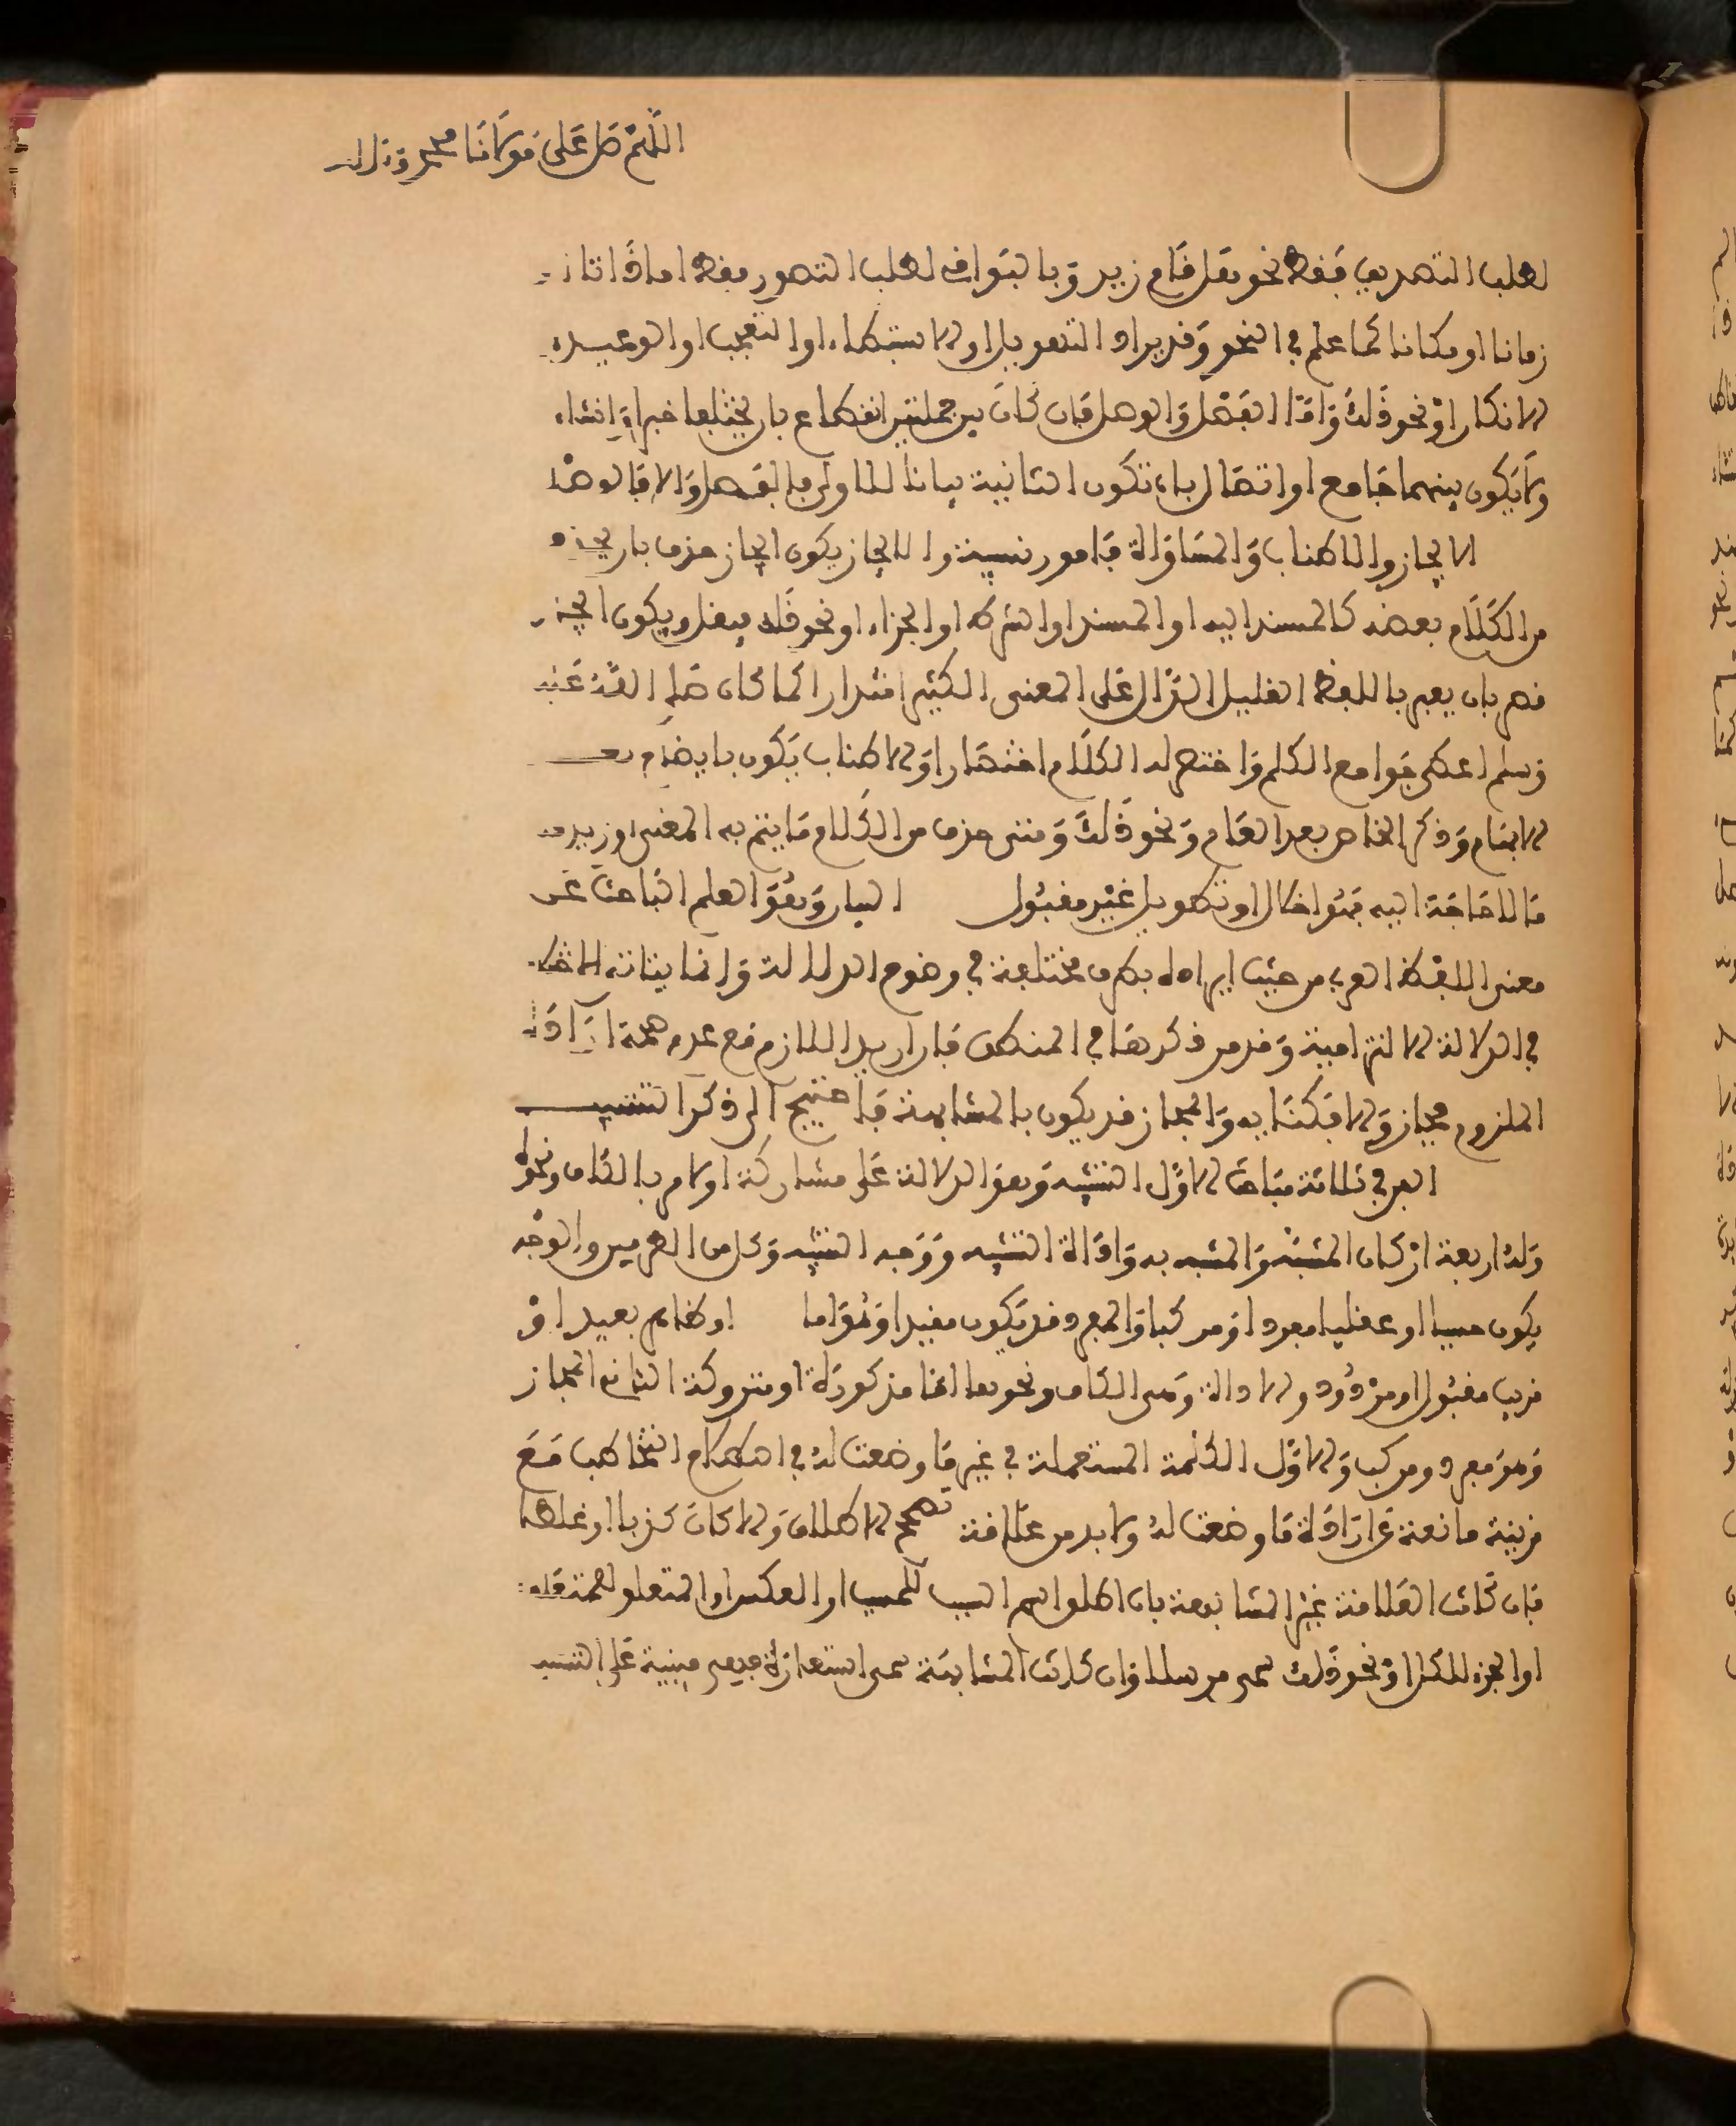 اللهم صل على مولانا محمد وءاله
لطلب التصديق فقط نحو هل قام زيد وبالبواقي لطلب التصور فقط اما ذاتا او
زمانا او مكانا كما علم في النحو وقد يراد التهويل او الاستبطاء او التعجب او الوعيد او
الانكار او نحو ذلك واما الفصل والوصل فان كان بين جملتين انقطاع بان يختلفا خبرا وانشاء
ولا يكون بينهما جامع او اتصال بان تكون الثانية بيانا للاولى فالفصل والا فالوصل
الايجاز والاطناب والمساواة فامور نسبية والايجاز يكون ايجاز حذف بان يحذف
من الكلام بعضه كالمسند اليه او المسند او الشرط او الجزاء او نحو ذلك ويكون ايجاز
قصر بان يعبر باللفظ القليل الدال على المعنى الكثير اقتدارا كما كان صلى الله عليه
وسلم اعطي جوامع الكلم واختصر له الكلام اختصارا والاطناب يكون بايضاح بعد
الابهام وذكر الخاص بعد العام ونحو ذلك ومتى حذف من الكلام ما يتم به المعنى او زيد فيه
ما لا حاجة اليه فهو اخلال او تطويل غير مقبول البيان وهو العلم الباحث عن
معنى اللفظ العربي من حيث ايراده بطرق مختلفة في وضوح الدلالة وانما يتاتى الاختلاف
في الدلالة الالتزامية وقد مر ذكرها في المنطق فان اريد اللازم مع عدم صحة ارادة
الملزوم مجاز والا فكناية والمجاز قد يكون بالمشابهة فاحتيج الى ذكر التشبيه
الفن في ثلاثة مباحث الاول التشبيه وهو الدلالة على مشاركة امر لامر بالكاف ونحوه
وله اربعة اركان المشبه والمشبه به واداة التشبيه ووجه التشبيه وكل من الطرفين والوجه
يكون حسيا او عقليا مفردا او مركبا والمفرد قد يكون مقيدا وهو اما او ظاهر بعيد او
قريب مقبول او مردود والاداة وهي الكاف ونحوها اما مذكورة او متروكة الثاني المجاز
وهو مفرد ومركب والاول الكلمة المستعملة في غير ما وضعت له في اصطلاح التخاطب مع
قرينة مانعة عن ارادة ما وضعت له ولا بد من علاقة تصحح الاطلاق والا كان كذبا او غلطا
فان كانت العلاقة غير المشابهة بان اطلق اسم السبب للمسبب او العكس او المتعلق لمتعلقه
او الجزء للكل او نحو ذلك سمي مرسلا وان كانت المشابهة سمي استعارة فهي مبنية على التشبيه